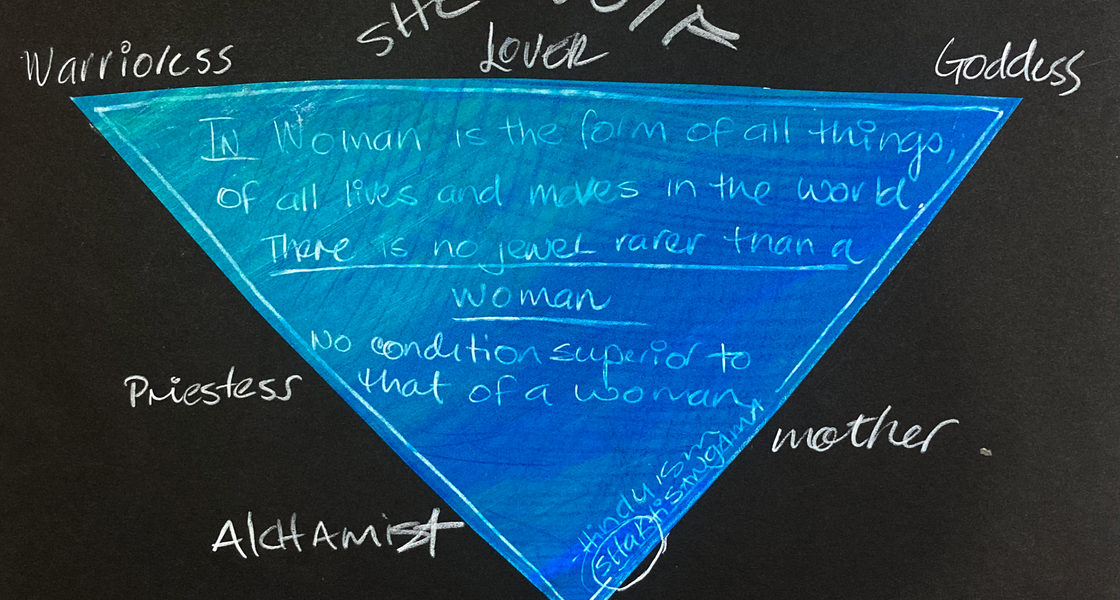 SHE
Lover
Warrioress
Goddess
IN Woman is the form of all things,
of all lives and moves in the world.
There is no jewel rarer than a
woman
No condition superior to
that of a woman
Priestess
mother
AlcHAmist
Hinduism
SHAKtiSANGAMA